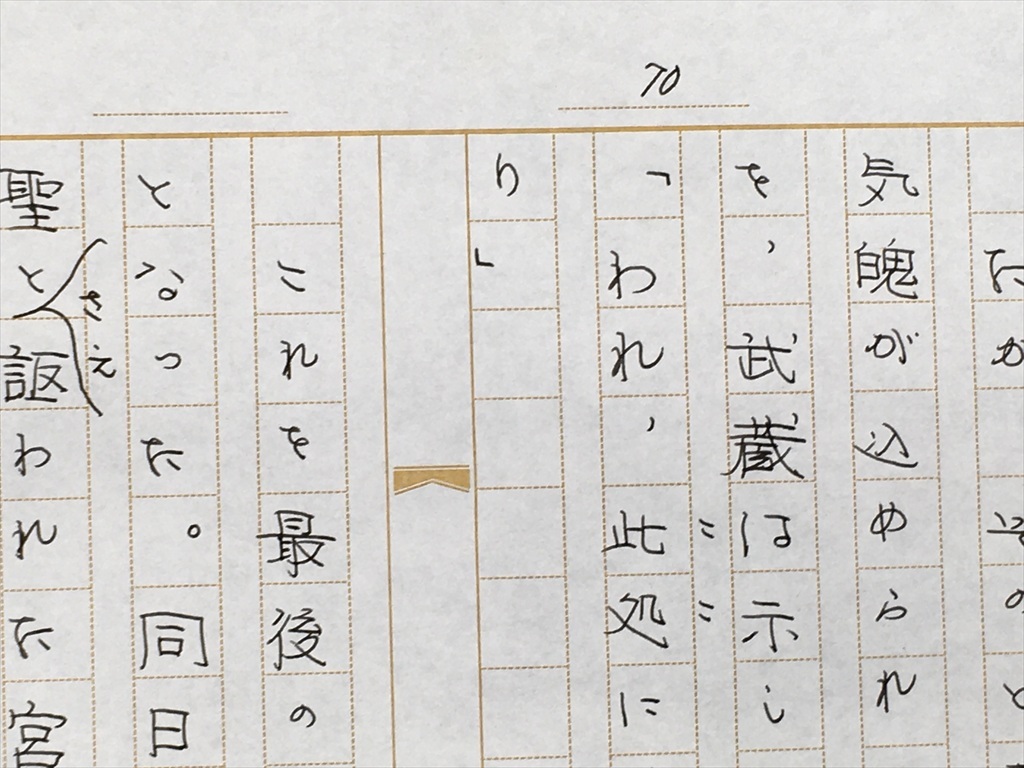 70
たが
そのと
気魄が込められ
を，武蔵は示し
「われ，此処に
ここ
り」
これを最後の
となった。同日
さえ
聖と謳われた宮